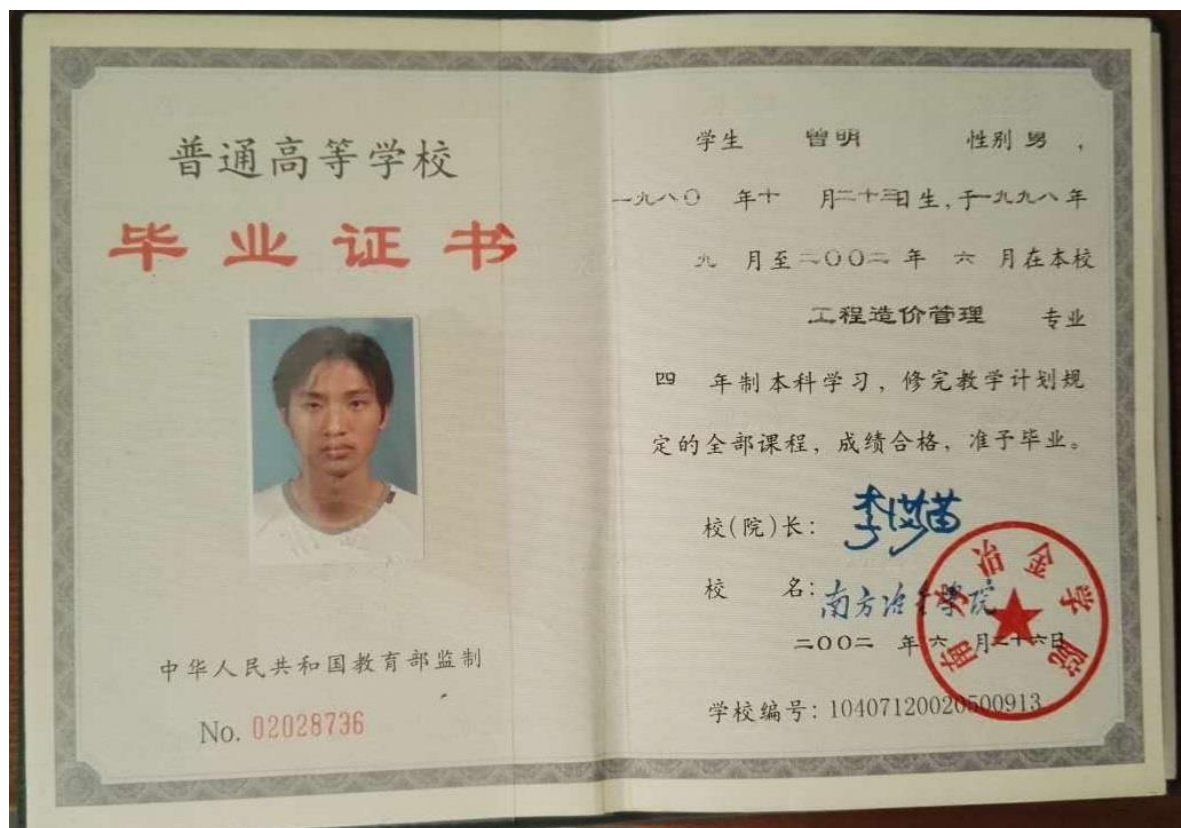 普通高等学校
毕业证书
中华人民共和国教育部监制
No. 02028736
学生 曾明 性别 男 ,
一九八〇 年十 月二十三日生,于一九九八年
九 月至二〇〇二 年 六 月在本校
工程造价管理 专业
四 年制本科学习,修完教学计划规
定的全部课程,成绩合格,准予毕业。
校(院)长:李
校 名:南方冶金学院
二〇〇二 年六 月二十六日
学校编号:104071200205009​13
南方冶金学院